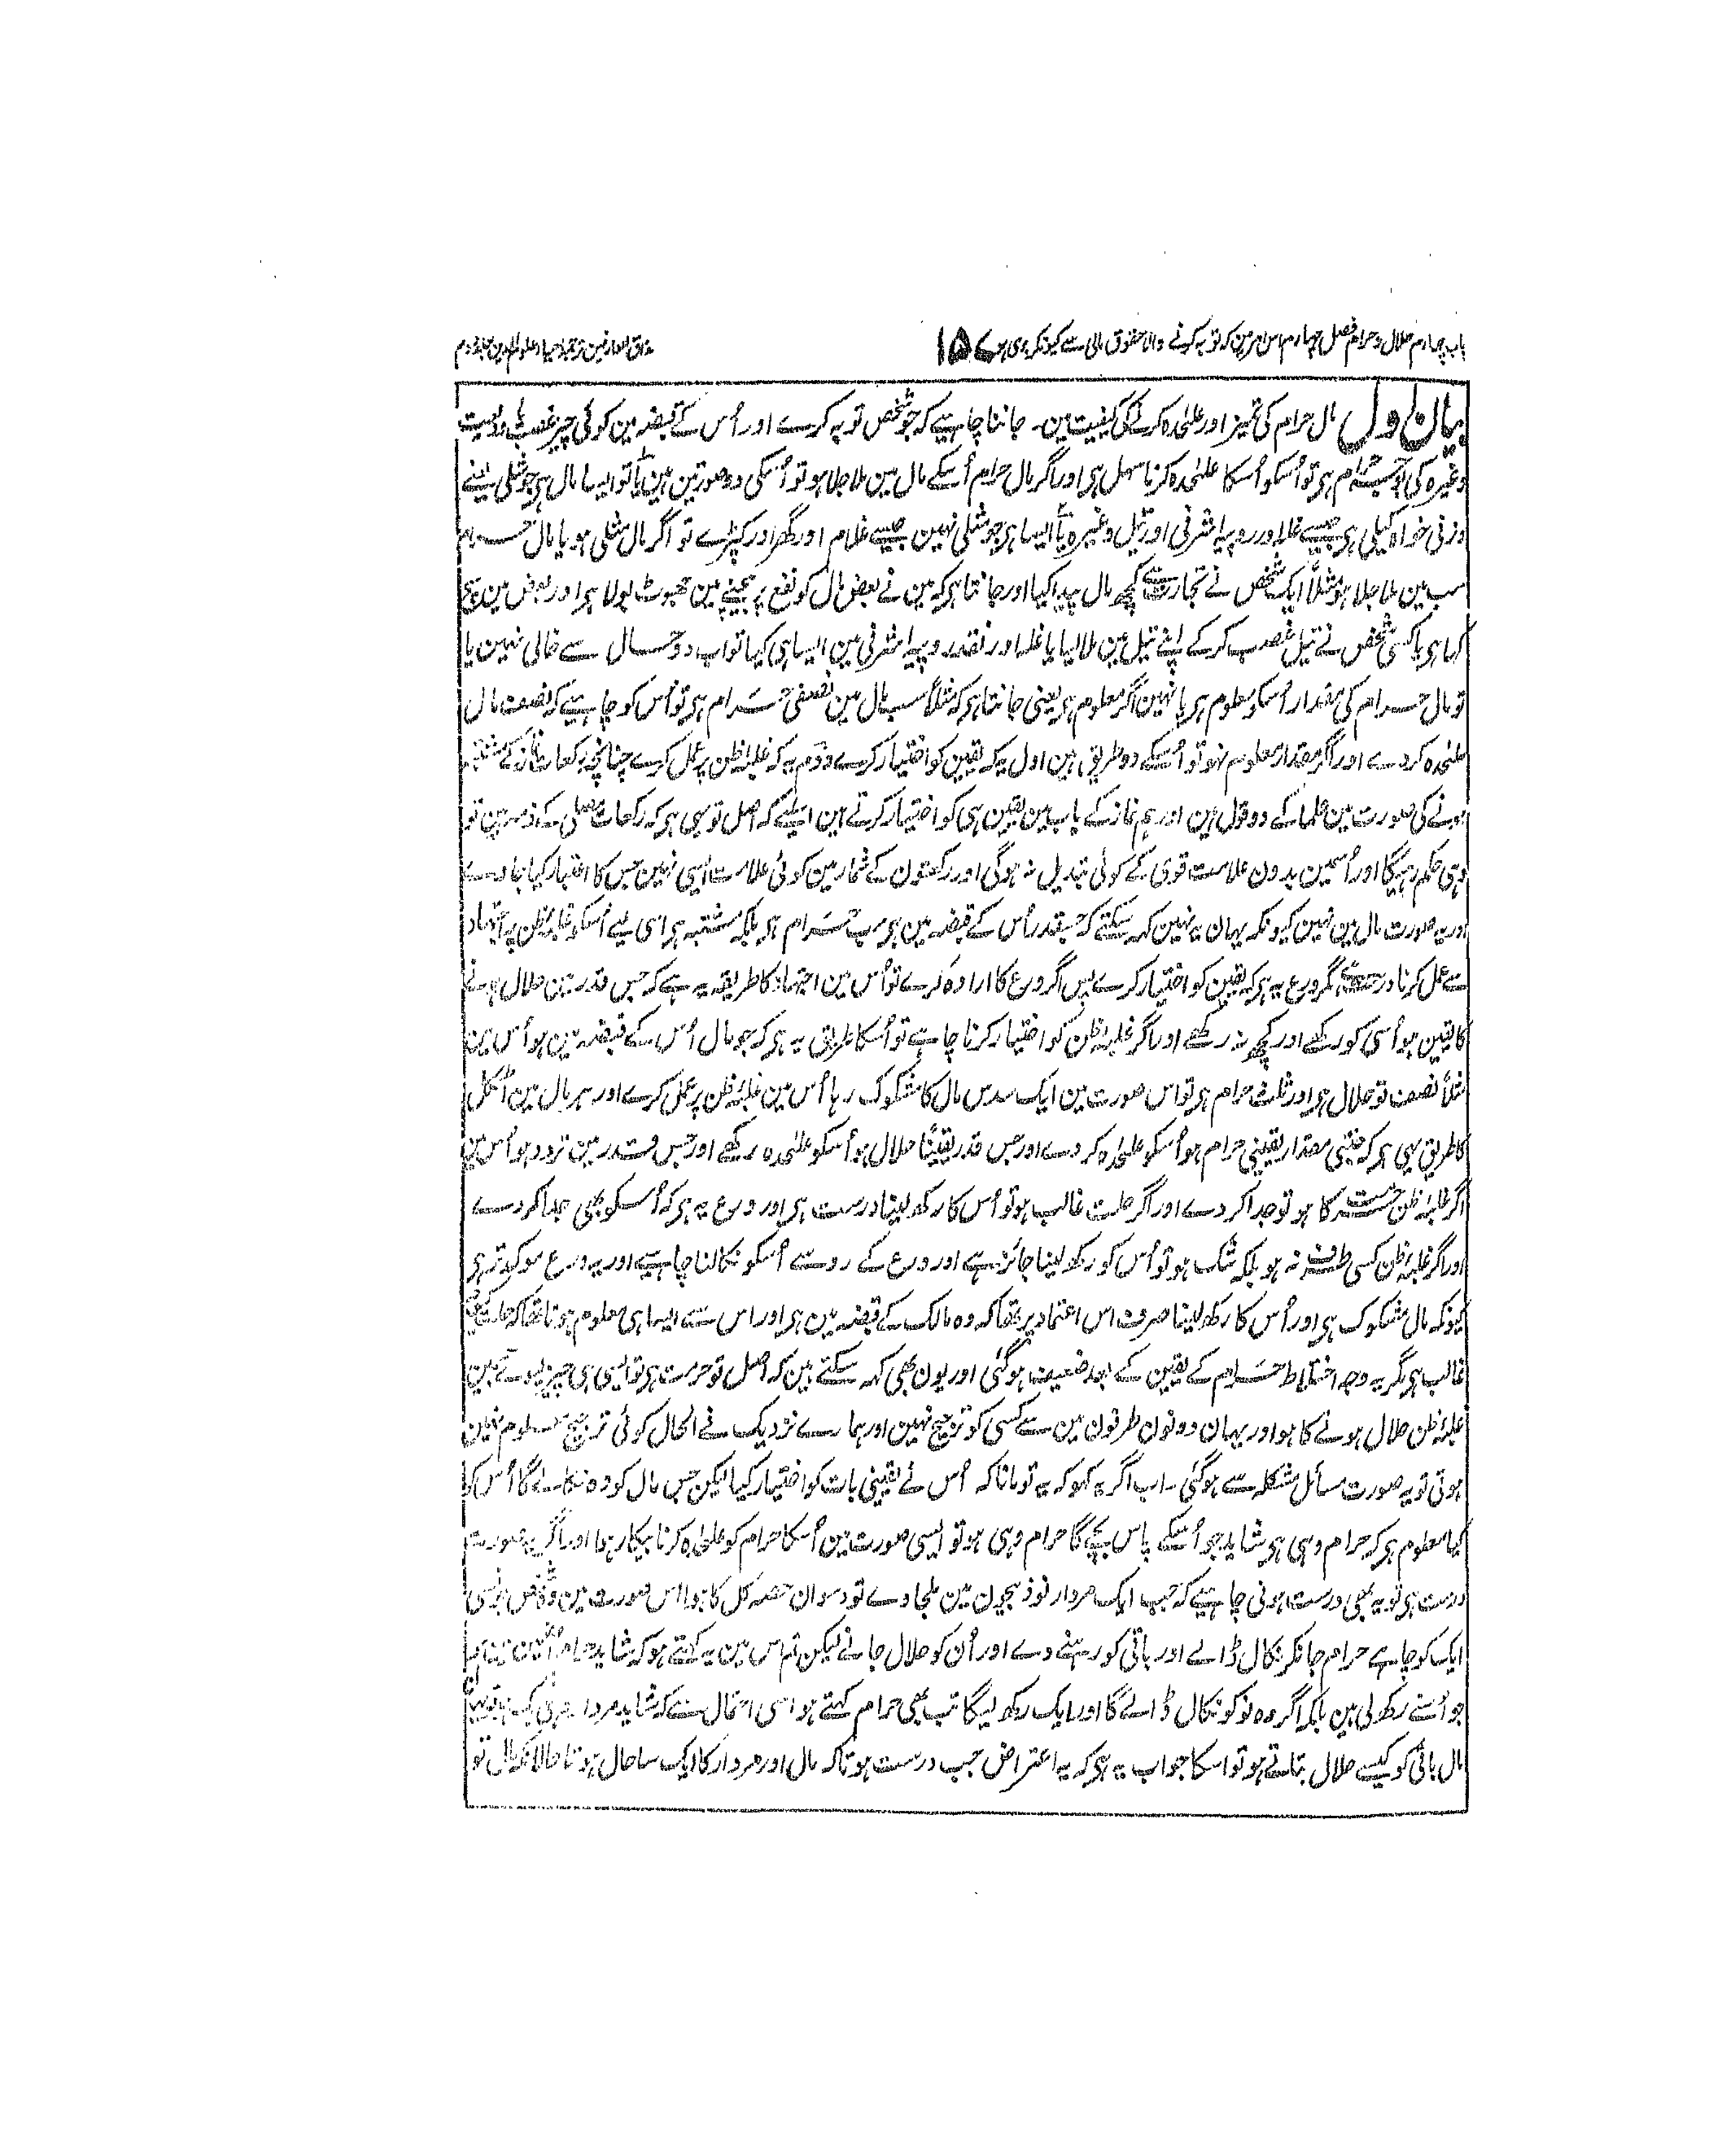 باب چہارم حلال و حرام فصل چہارم اس امر مین کہ توبہ کرنے والا حقوق مالی سے کیونکر بری ہو ۱۵۷ مذاق العارفین ترجمہ احیاء علوم الدین جلد دوم
بیان اول مال حرام کی تمیز اور علٰحدہ کرنے کی کیفیت مین۔ جاننا چاہیے کہ جو شخص توبہ کرے اور اُس کے قبضہ مین کوئی چیز غصب یا ودیعت
وغیرہ کی ہو جو حرام ہی تو اُسکو اُسکا علٰحدہ کرنا سہل ہی اور اگر مال حرام اُسکے مال مین ملا جلا ہو تو اُسکی دو صورتین ہین یا تو ایسا مال ہی جو مثلی یعنے
وزنی خواہ کیلی ہی جیسے غلہ اور روپیہ اشرفی اور تیل وغیرہ یا ایسا ہی جو مثلی نہین جیسے غلام اور گھر اور کپڑے تو اگر مال مثلی ہو یا مال حرام
سب مین ملا جلا ہو مثلاً ایک شخص نے تجارت سے کچھ مال پیدا کیا اور جانتا ہی کہ مین نے بعض مال کو نفع پر بیچنے مین جھوٹ بولا ہی اور بعض مین سچ
کہا ہی یا کسی شخص نے تیل غصب کر کے اپنے تیل مین ملا لیا یا غلہ اور نقد روپیہ اشرفی مین ایسا ہی کیا تو اب دو حال سے خالی نہین یا
تو مال حرام کی مقدار اُسکو معلوم ہی یا نہین اگر معلوم ہی یعنی جانتا ہی کہ مثلاً سب مال مین نصف حرام ہی تو اُس کو چاہیے کہ نصف مال
علٰحدہ کر دے اور اگر مقدار معلوم نہو تو اُسکے دو طریق ہین اول یہ کہ یقین کو اختیار کرے دوم یہ کہ غلبۂ ظن پر عمل کرے چنانچہ رکعات نماز کے مشتبہ
ہونے کی صورت مین علما کے دو قول ہین اور ہم نماز کے باب مین یقین ہی کو اختیار کرتے ہین اسلئے کہ اصل تو یہی ہی کہ رکعات مصلی کے ذمہ ہین تو
وہی حکم رہیگا اور اُسمین بدون علامت قوی کے کوئی تبدیل نہ ہوگی اور رکعتون کے شمار مین کوئی علامت ایسی نہین جس کا اعتبار کیا جاوے
اور یہ صورت مال مین نہین کیونکہ یہان یہ نہین کہہ سکتے کہ جسقدر اُس کے قبضہ مین ہی سب حرام ہی بلکہ مشتبہ ہی اسی لیے اُسکو غلبۂ ظن پر اجتہاد
سے عمل کرنا درست ہی مگر ورع یہ ہی کہ یقین کو اختیار کرے پس اگر ورع کا ارادہ کرے تو اُس مین اجتہاد کا طریقہ یہ ہے کہ جس قدر مین حلال ہونے
کا یقین ہو اُسی کو رکھے اور کچھ نہ رکھے اور اگر غلبۂ ظن کو اختیار کرنا چاہے تو اُسکا طریق یہ ہی کہ جو مال اُس کے قبضہ مین ہو اُس مین
مثلاً نصف تو حلال ہی اور ثلث حرام ہی تو اس صورت مین ایک سدس مال کا مشکوک رہا اُس مین غلبۂ ظن پر عمل کرے اور ہر مال مین اٹکل
کا طریق یہی ہی کہ جتنی مقدار یقینی حرام ہو اُسکو علٰحدہ کر دے اور جس قدر یقیناً حلال ہو اُسکو علٰحدہ رکھے اور جس قدر مین تردد ہو اُس مین
اگر غلبۂ ظن حرمت کا ہو تو جدا کر دے اور اگر حلت غالب ہو تو اُس کا رکھ لینا درست ہی اور ورع یہ ہی کہ اُسکو بھی جدا کر دے
اور اگر غلبۂ ظن کسی طرف نہ ہو بلکہ شک ہو تو اُس کو رکھ لینا جائز ہے اور ورع کے رو سے اُسکو نکالنا چاہیے اور یہ ورع موکد تر ہی
کیونکہ مال مشکوک ہی اور اُس کا رکھ لینا صرف اس اعتماد پر تھا کہ وہ مالک کے قبضہ مین ہی اور اس سے ایسا ہی معلوم ہوتا تھا کہ حلت
غالب ہی مگر یہ وجہ اختلاط حرام کے یقین کے بعد ضعیف ہو گئی اور یون بھی کہہ سکتے ہین کہ اصل تو حرمت ہی تو ایسی ہی چیز لیوے جسمین
غلبۂ ظن حلال ہونے کا ہو اور یہان دونون طرفون مین سے کسی کو ترجیح نہین اور ہمارے نزدیک فی الحال کوئی ترجیح معلوم نہین
ہوتی تو یہ صورت مسائل مشکلہ سے ہو گئی۔ اب اگر یہ کہو کہ یہ تو مانا کہ اُس نے یقینی بات کو اختیار کیا لیکن جس مال کو وہ نکالے گا اُس کو
کیا معلوم ہی کہ حرام وہی ہی شاید جو اُسکے پاس بچے گا حرام وہی ہو تو ایسی صورت مین اُسکا حرام کو علٰحدہ کرنا بیکار رہا اور اگر یہ صورت
درست ہی تو یہ بھی درست ہونی چاہیے کہ جب ایک مردار نو ذبیحون مین ملجاوے تو دسوان حصہ کل کا ہوا اس صورت مین وہ شخص جونسی
ایک کو چاہے حرام جانکر نکال ڈالے اور باقی کو رہنے دے اور اُن کو حلال جانے لیکن تم اس مین یہ کہتے ہو کہ شاید حرام اُنھین مین ہو
جو اُسنے رکھ لی ہین بلکہ اگر وہ نو کو نکال ڈالے گا اور ایک رکھ لیگا تب بھی حرام کہتے ہو اسی احتمال سے کہ شاید مردار
مال باقی کو کیسے حلال بتاتے ہو تو اسکا جواب یہ ہی کہ یہ اعتراض جب درست ہوتا کہ مال اور مردار کا ایک سا حال ہوتا حالانکہ مال تو